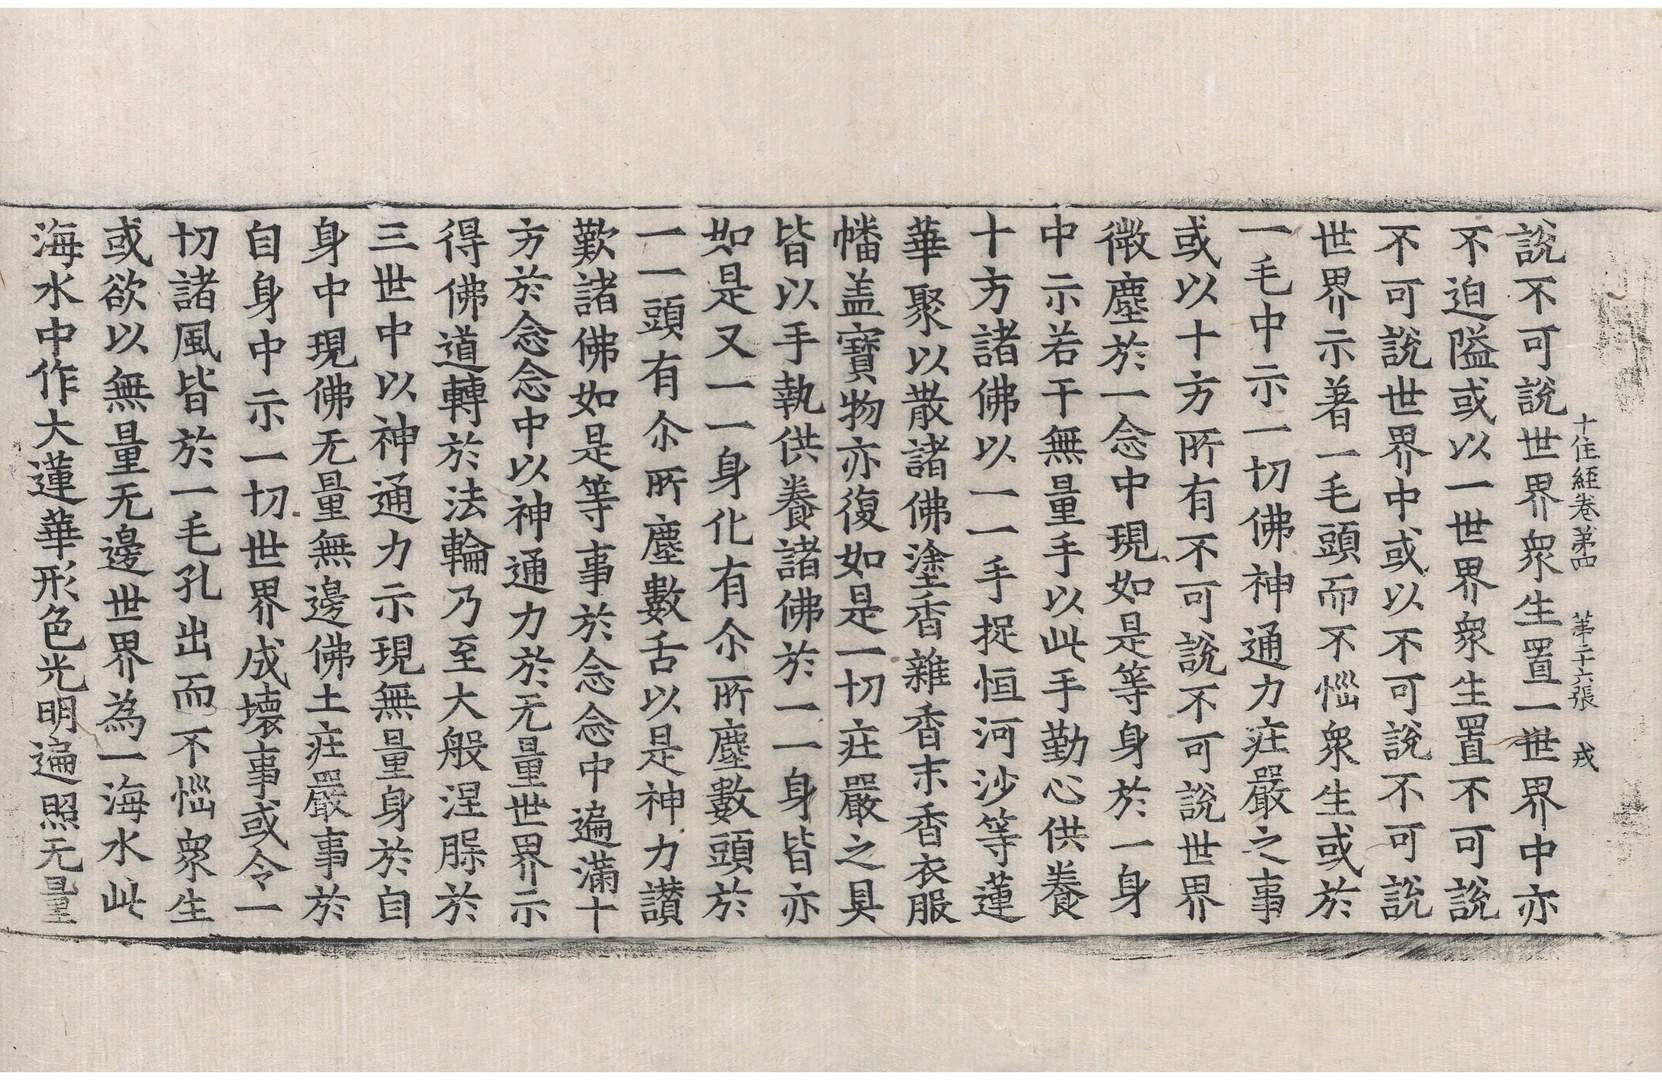 十住經卷第四　第二十六張　戎
說不可說世界衆生置一世界中亦
不迫隘或以一世界衆生置不可說
不可說世界中或以不可說不可說
世界示著一毛頭而不惱衆生或於
一毛中示一切佛神通力莊嚴之事
或以十方所有不可說不可說世界
微塵於一念中現如是等身於一身
中示若干無量手以此手勤心供養
十方諸佛以一一手捉恒河沙等蓮
華聚以散諸佛塗香雜香末香衣服
幡盖寶物亦復如是一切莊嚴之具
皆以手執供養諸佛於一一身皆亦
如是又一一身化有尒所塵數頭於
一一頭有尒所塵數舌以是神力讃
歎諸佛如是等事於念念中遍滿十
方於念念中以神通力於无量世界示
得佛道轉於法輪乃至大般涅槃於
三世中以神通力示現無量身於自
身中現佛无量無邊佛土莊嚴事於
自身中示一切世界成壞事或令一
切諸風皆於一毛孔出而不惱衆生
或欲以無量无邊世界為一海水此
海水中作大蓮華形色光明遍照无量